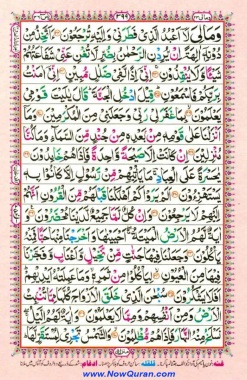 وَمَالِیَ لَاۤ اَعْبُدُ الَّذِیْ فَطَرَنِیْ وَاِلَیْهِ تُرْجَعُوْنَ ءَاَتَّخِذُ مِنْ
دُوْنِهٖۤ اٰلِهَةً اِنْ یُّرِدْنِ الرَّحْمٰنُ بِضُرٍّ لَّا تُغْنِ عَنِّیْ شَفَاعَتُهُمْ
شَیْــًٔا وَّلَا یُنْقِذُوْنِ اِنِّیْۤ اِذًا لَّفِیْ ضَلٰلٍ مُّبِیْنٍ اِنِّیْۤ اٰمَنْتُ
بِرَبِّكُمْ فَاسْمَعُوْنِ قِیْلَ ادْخُلِ الْجَنَّةَ قَالَ یٰلَیْتَ قَوْمِیْ
یَعْلَمُوْنَ بِمَا غَفَرَ لِیْ رَبِّیْ وَجَعَلَنِیْ مِنَ الْمُكْرَمِیْنَ وَمَاۤ
اَنْزَلْنَا عَلٰی قَوْمِهٖ مِنْ بَعْدِهٖ مِنْ جُنْدٍ مِّنَ السَّمَآءِ وَمَا كُنَّا
مُنْزِلِیْنَ اِنْ كَانَتْ اِلَّا صَیْحَةً وَّاحِدَةً فَاِذَا هُمْ خٰمِدُوْنَ
یٰحَسْرَةً عَلَی الْعِبَادِ مَا یَاْتِیْهِمْ مِّنْ رَّسُوْلٍ اِلَّا كَانُوْا بِهٖ
یَسْتَهْزِءُوْنَ اَلَمْ یَرَوْا كَمْ اَهْلَكْنَا قَبْلَهُمْ مِّنَ الْقُرُوْنِ اَنَّهُمْ
اِلَیْهِمْ لَا یَرْجِعُوْنَ وَاِنْ كُلٌّ لَّمَّا جَمِیْعٌ لَّدَیْنَا مُحْضَرُوْنَ وَ
اٰیَةٌ لَّهُمُ الْاَرْضُ الْمَیْتَةُ اَحْیَیْنٰهَا وَاَخْرَجْنَا مِنْهَا حَبًّا فَمِنْهُ
یَاْكُلُوْنَ وَجَعَلْنَا فِیْهَا جَنّٰتٍ مِّنْ نَّخِیْلٍ وَّاَعْنَابٍ وَّفَجَّرْنَا
فِیْهَا مِنَ الْعُیُوْنِ لِیَاْكُلُوْا مِنْ ثَمَرِهٖ وَمَا عَمِلَتْهُ اَیْدِیْهِمْ
اَفَلَا یَشْكُرُوْنَ سُبْحٰنَ الَّذِیْ خَلَقَ الْاَزْوَاجَ كُلَّهَا مِمَّا تُنْۢبِتُ
الْاَرْضُ وَمِنْ اَنْفُسِهِمْ وَمِمَّا لَا یَعْلَمُوْنَ وَاٰیَةٌ لَّهُمُ الَّیْلُ
نَسْلَخُ مِنْهُ النَّهَارَ فَاِذَا هُمْ مُّظْلِمُوْنَ وَالشَّمْسُ تَجْرِیْ لِمُسْتَقَرٍّ لَّهَا
www.NowQuran.com